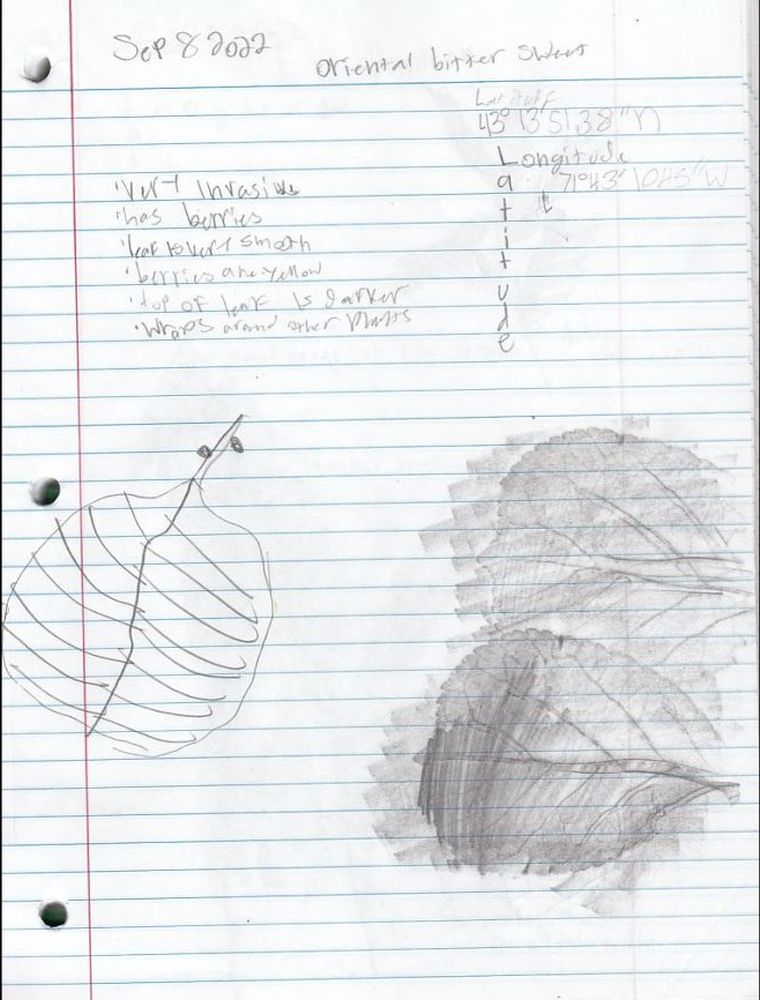 Sep 8 2022
Oriental bitter sweet
Latitude
43° 13' 51.38"N
Longitude
71°43' 10.45"W
a
t
t
i
t
u
d
e
• Very Invasive
• has berries
• leaf is very smooth
• berries are yellow
• top of leaf is darker
• wraps around other plants